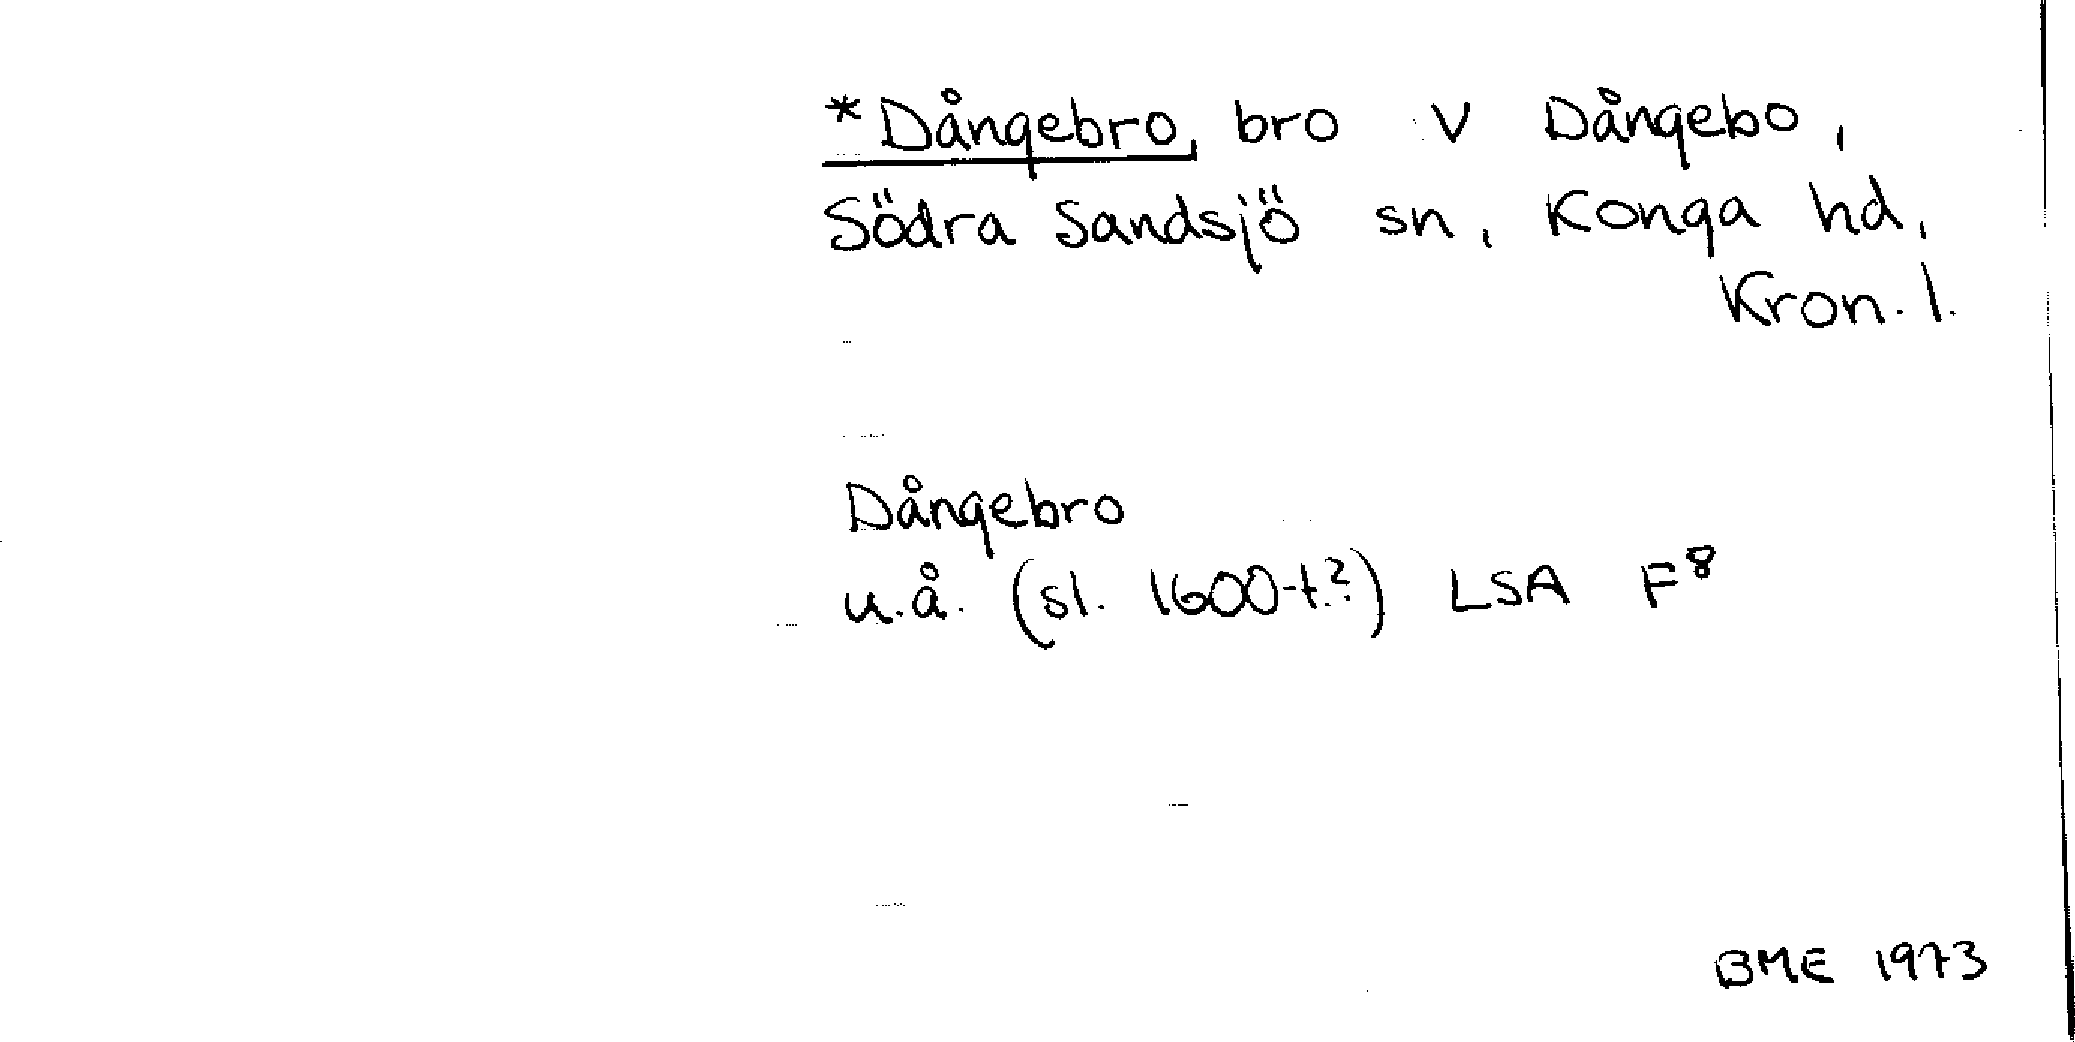 *Dångebro, bro V Dångebo,
Södra Sandsjö sn, Konga hd,
Kron. l.
Dångebro
u.å. (sl. 1600-t.?) LSA F⁸
BME 1973